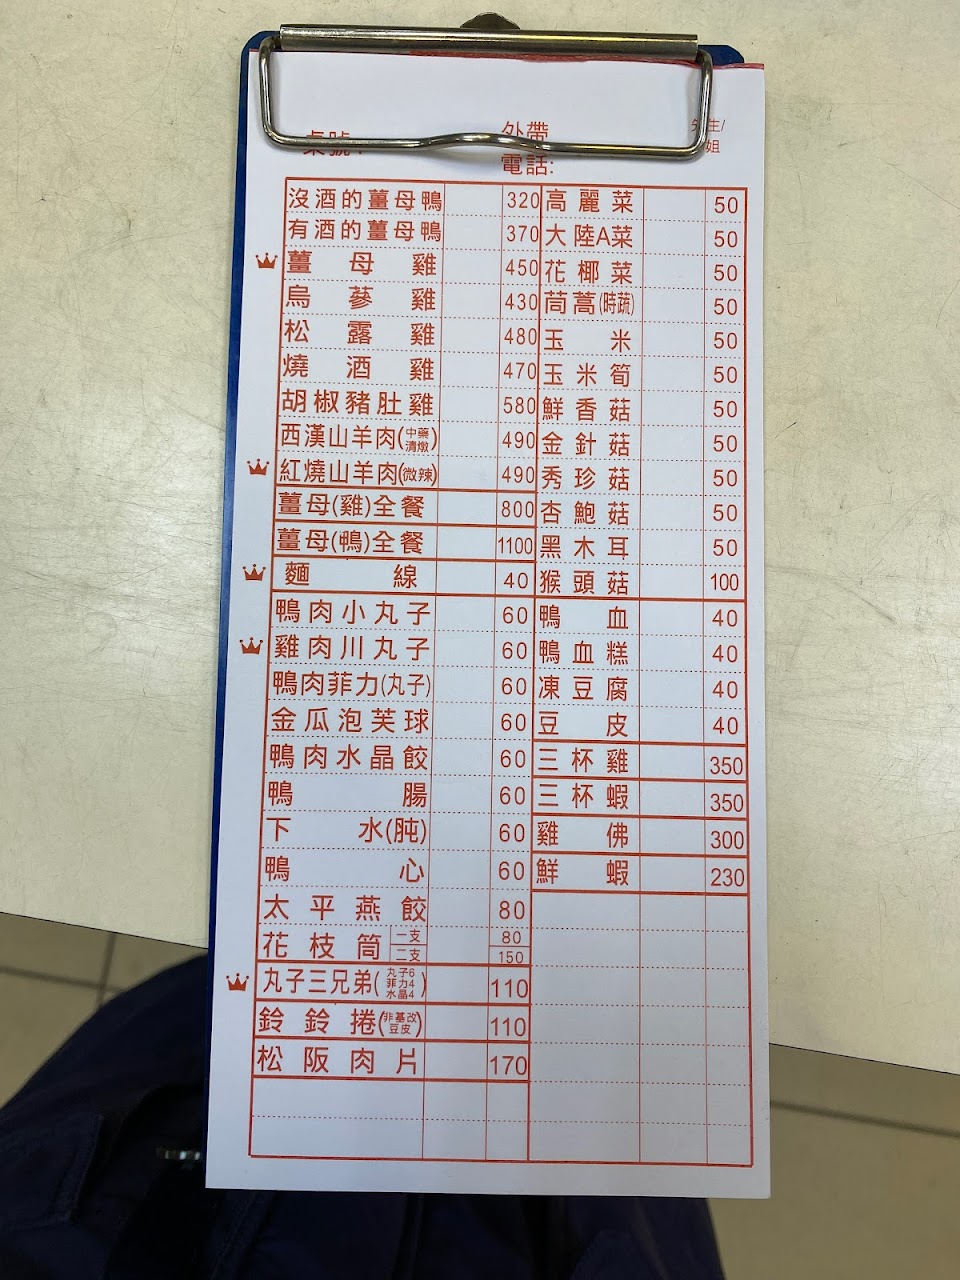 外帶
電話:
沒酒的薑母鴨 320
有酒的薑母鴨 370
薑母雞 450
烏蔘雞 430
松露雞 480
燒酒雞 470
胡椒豬肚雞 580
西漢山羊肉(中藥清燉) 490
紅燒山羊肉(微辣) 490
薑母(雞)全餐 800
薑母(鴨)全餐 1100
麵線 40
鴨肉小丸子 60
雞肉川丸子 60
鴨肉菲力(丸子) 60
金瓜泡芙球 60
鴨肉水晶餃 60
鴨腸 60
下水(肫) 60
鴨心 60
太平燕餃 80
花枝筒 一支 80
二支 150
丸子三兄弟(丸子6 菲力4 水晶4) 110
鈴鈴捲(非基改豆皮) 110
松阪肉片 170
高麗菜 50
大陸A菜 50
花椰菜 50
茼蒿(時蔬) 50
玉米 50
玉米筍 50
鮮香菇 50
金針菇 50
秀珍菇 50
杏鮑菇 50
黑木耳 50
猴頭菇 100
鴨血 40
鴨血糕 40
凍豆腐 40
豆皮 40
三杯雞 350
三杯蝦 350
雞佛 300
鮮蝦 230